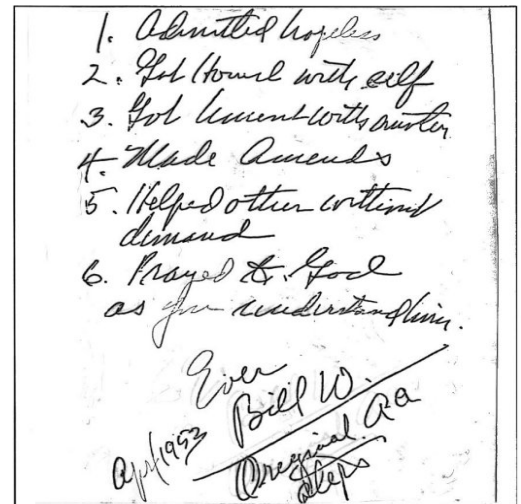 1. Admitted hopeless
2. Got Honest with self
3. Got honest with another
4. Made Amends
5. Helped other without
demand
6. Prayed to God
as you understand him.
Ever
Bill W.
Apr/1953
Original AA
Steps